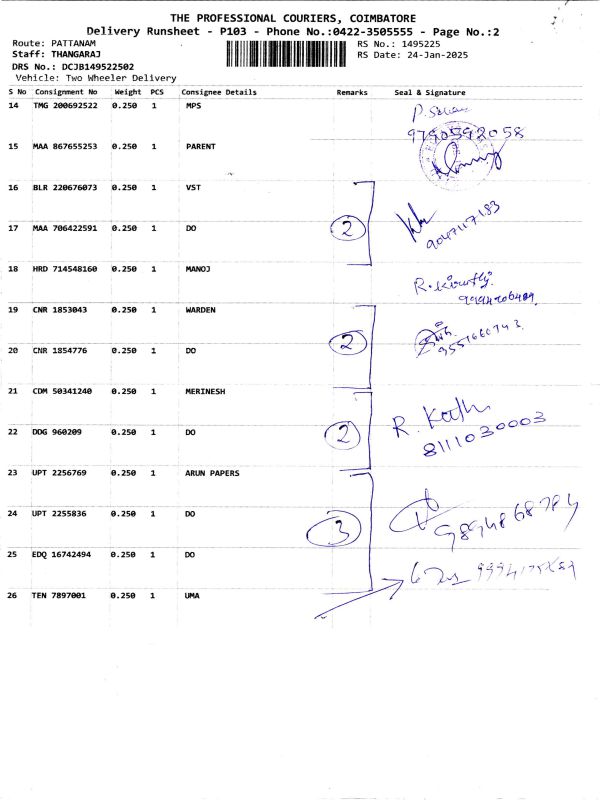 THE PROFESSIONAL COURIERS, COIMBATORE
Delivery Runsheet - P103 - Phone No.:0422-3505555 - Page No.:2
Route: PATTANAM
RS No.: 1495225
Staff: THANGARAJ
RS Date: 24-Jan-2025
DRS No.: DCJB149522502
Vehicle: Two Wheeler Delivery
S No Consignment No Weight PCS Consignee Details Remarks Seal & Signature
14 TMG 200692522 0.250 1 MPS
9790592058
15 MAA 867655253 0.250 1 PARENT
16 BLR 220676073 0.250 1 VST
17 MAA 706422591 0.250 1 DO 2 9047117183
18 HRD 714548160 0.250 1 MANOJ
19 CNR 1853043 0.250 1 WARDEN
2
20 CNR 1854776 0.250 1 DO
21 CDM 50341240 0.250 1 MERINESH
22 DDG 960209 0.250 1 DO 2 8111030003
23 UPT 2256769 0.250 1 ARUN PAPERS
24 UPT 2255836 0.250 1 DO 3 9894868784
25 EDQ 16742494 0.250 1 DO
26 TEN 7897001 0.250 1 UMA